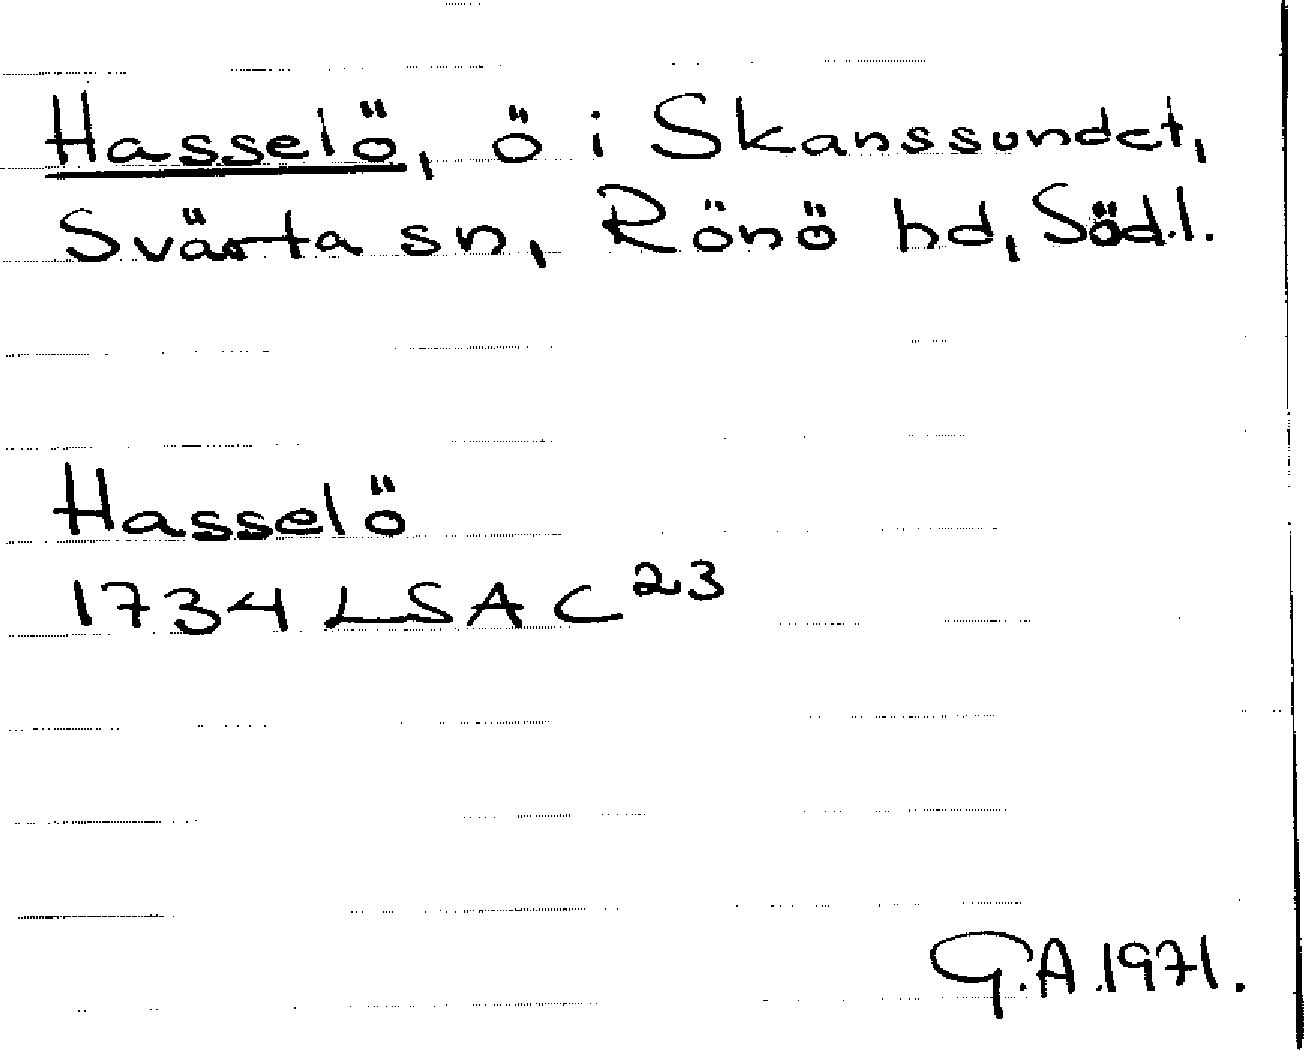 Hasselö, ö i Skanssundet,
Svärta sn, Rönö hd, Södl.
Hasselö
1734 LSA C²³
G.A. 1971.